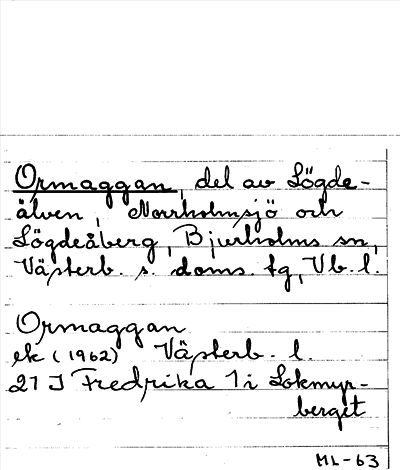 Ormaggan, del av Lögde-
älven, Norrholmsjö och
Lögdeåberg, Bjurholms sn,
Västerb. s. doms. tg, Vb. l.
Ormaggan
ek (1962) Västerb. l.
21 J Fredrika 1 i Lokmyr-
berget
ML-63